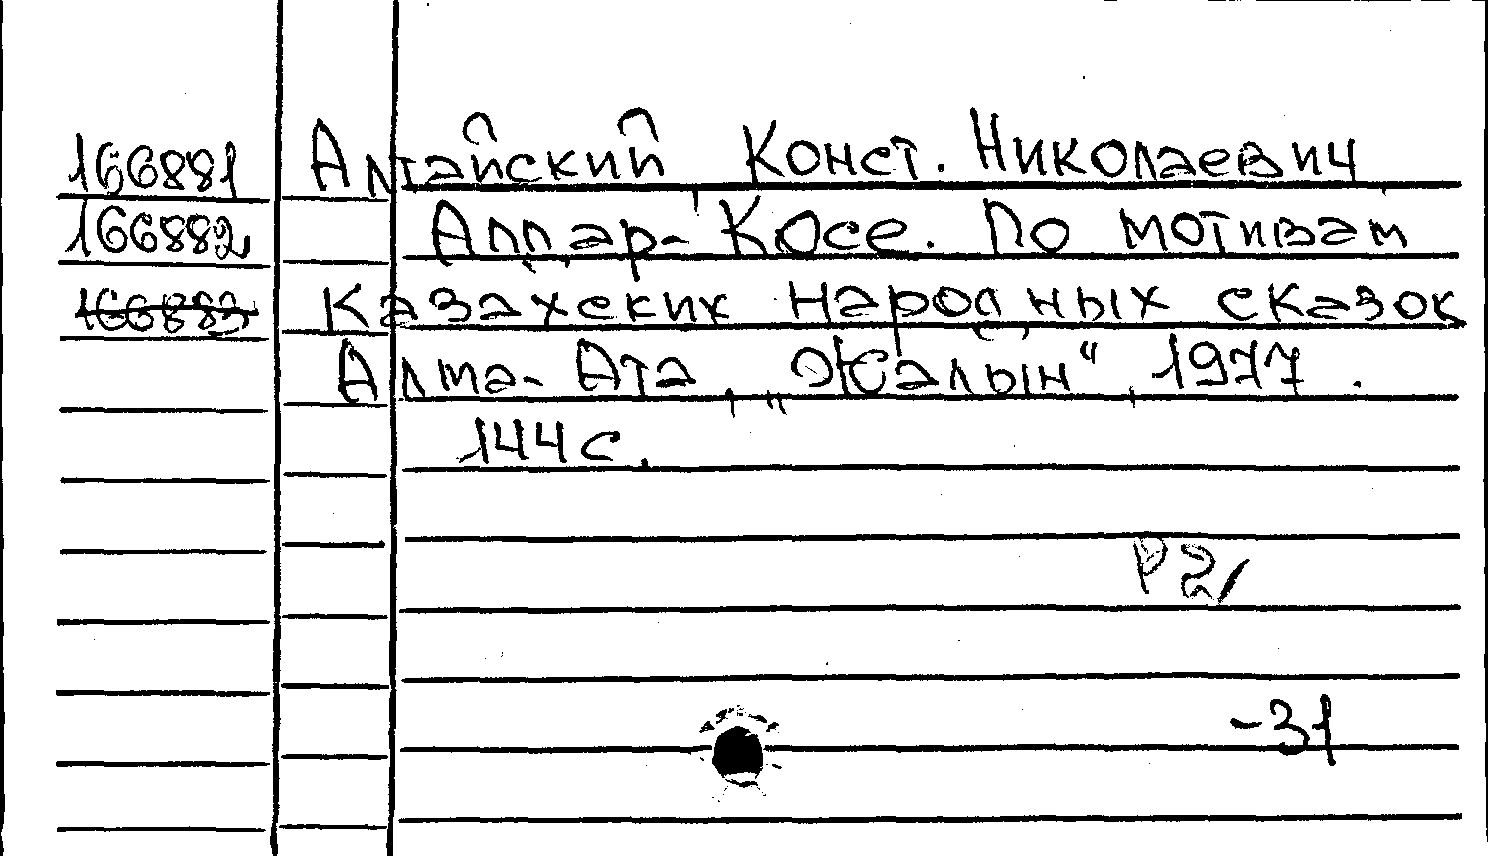 166881 Алтайский Конст. Николаевич
166882 Алдар-Косе. По мотивам
166883 Казахских народных сказок
Алма-Ата, „Жалын“, 1977.
144 с.
Р2
-31